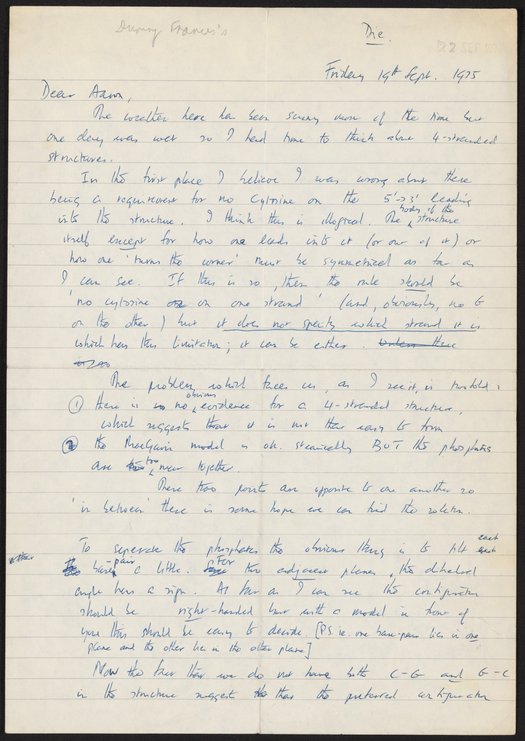 During Francis's
Die.
22 SEP
Friday 19th Sept. 1975
Dear Aaron,
The weather here has been sunny most of the time but
one day was wet so I had time to think about 4-stranded
structures.
In the first place I believe I was wrong about there
being a requirement for no Cytosine on the 5'→3' leading
into the structure. I think this is illogical. The body of the structure
itself except for how one leads into it (or out of it) or
how one 'turns the corner' must be symmetrical as far as
I can see. If this is so, then the rule should be
'no cytosine on one strand' (and, obviously, no G
on the other) but it does not specify which strand it is
which has this limitation; it can be either. Unless there
The problem which faces us, as I see it, is twofold:
① there is no obvious evidence for a 4-stranded structure,
which suggests that it is not that easy to form
② the MacGavin model is ok. sterically BUT the phosphates
are too near together.
These two points are opposite to one another so
'in between' there is some hope we can find the solution.
To seperate the phosphates the obvious thing is to tilt each
base-pair a little. For two adjacent planes, the dihedral
angle has a sign. As far as I can see the configuration
should be right-handed but with a model in front of
you this should be easy to decide. [PS ie. one base-pair lies in one
plane and the other lies in the other plane]
Now the fact that we do not have both C-G and G-C
in the structure suggests that the preferred configuration